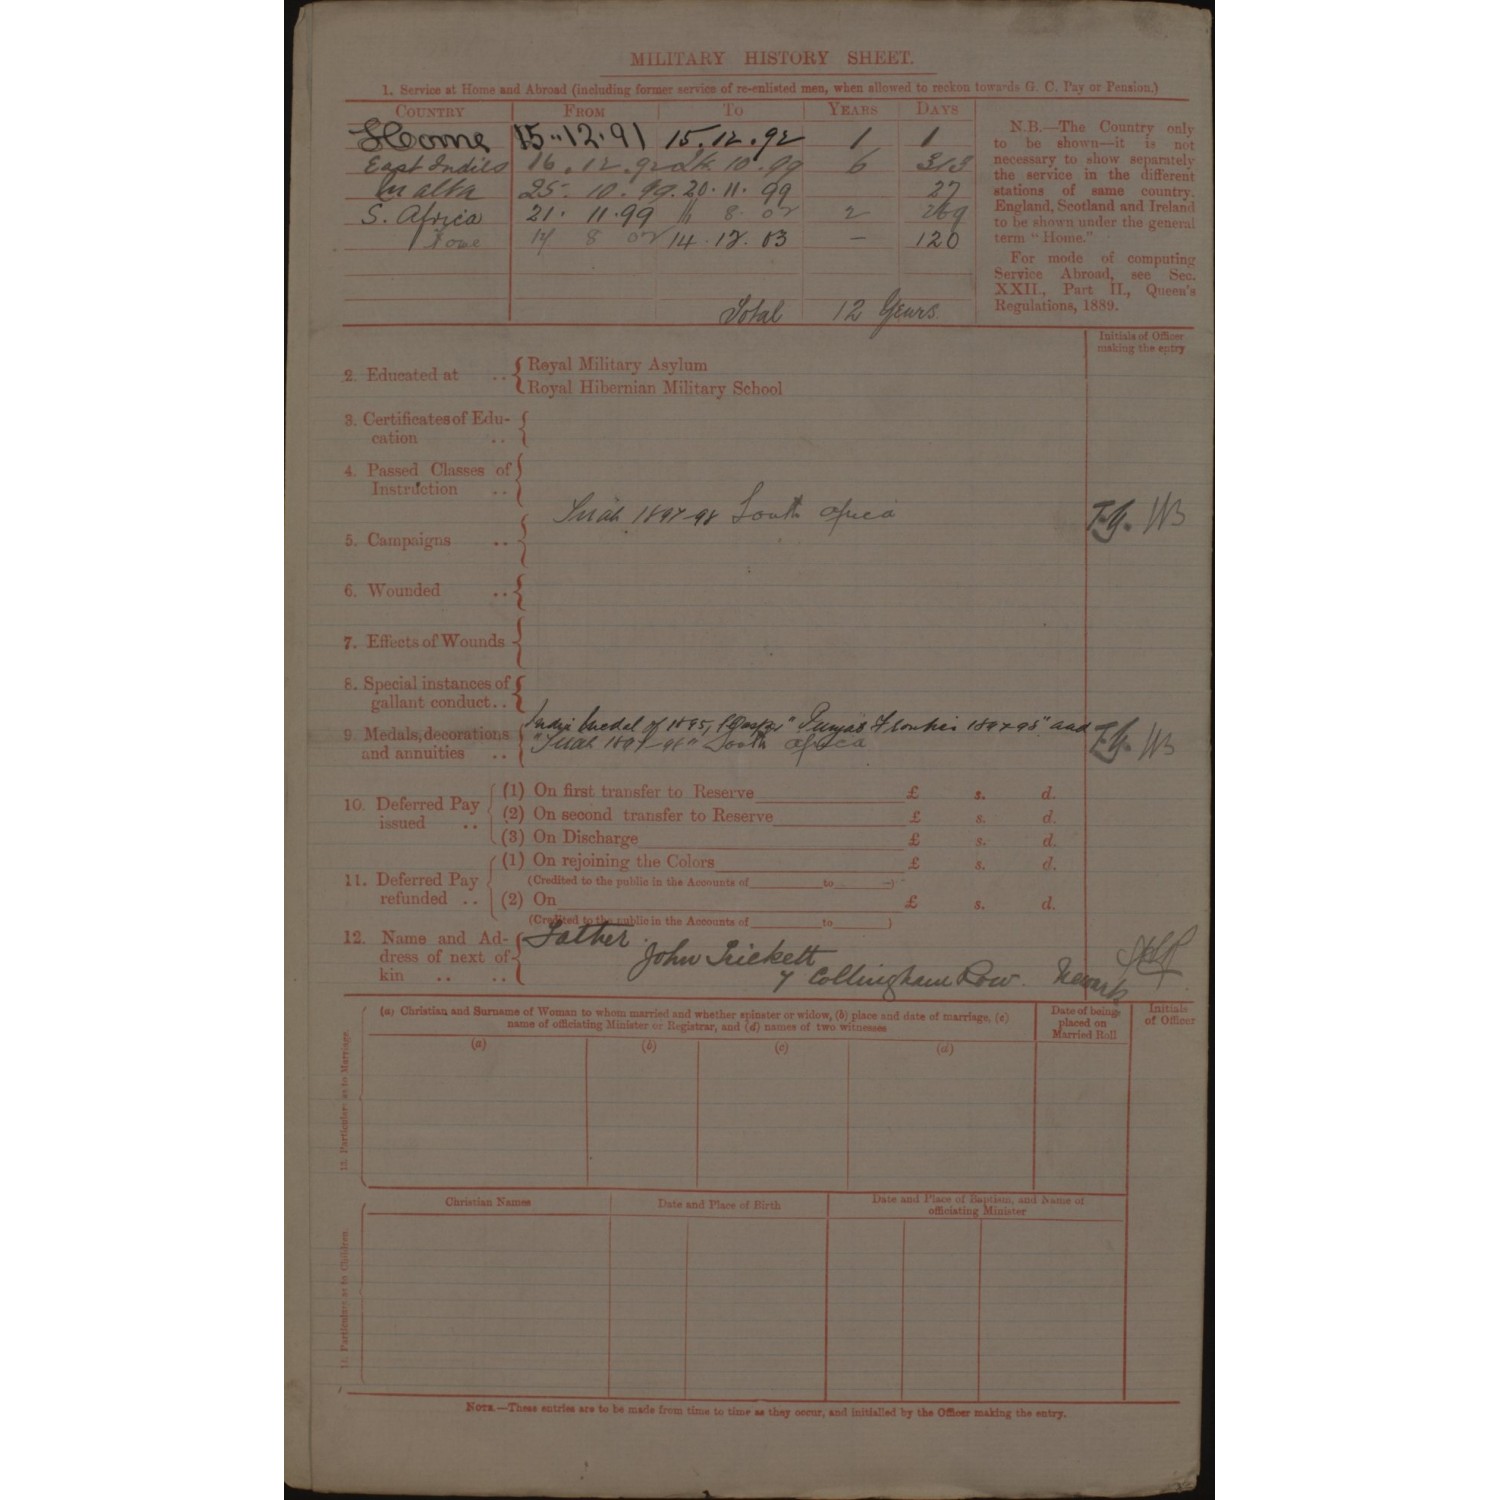 MILITARY HISTORY SHEET.
1. Service at Home and Abroad (including former service of re-enlisted men, when allowed to reckon towards G. C. Pay or Pension.)
COUNTRY FROM TO YEARS DAYS
Home 15.12.91 15.12.92 1 1
East Indies 16.12.92 24 10.99 6 313
Malta 25.10.99. 20.11.99 27
S. Africa 21.11.99 8 02 2 269
8 02 14.12.03 – 120
Total 12 Years
N.B.—The Country only
to be shown—it is not
necessary to show separately
the service in the different
stations of same country.
England, Scotland and Ireland
to be shown under the general
term "Home."
For mode of computing
Service Abroad, see Sec.
XXII., Part II., Queen's
Regulations, 1889.
Initials of Officer
making the entry
2. Educated at .. Royal Military Asylum
Royal Hibernian Military School
3. Certificates of Edu-
cation ..
4. Passed Classes of
Instruction ..
5. Campaigns .. Tirah 1897-98 South Africa
6. Wounded ..
7. Effects of Wounds
8. Special instances of
gallant conduct..
9. Medals, decorations
and annuities ..
India Medal of 1895, Clasps "Punjab Frontier 1897-98" and
"Tirah 1897-98" South Africa
10. Deferred Pay
issued ..
(1) On first transfer to Reserve £ s. d.
(2) On second transfer to Reserve £ s. d.
(3) On Discharge £ s. d.
11. Deferred Pay
refunded ..
(1) On rejoining the Colors £ s. d.
(Credited to the public in the Accounts of to )
(2) On £ s. d.
(Credited to the public in the Accounts of to )
12. Name and Ad-
dress of next of
kin .. ..
Father
John Trickett
7 Collingham Row. Newark
13. Particulars as to Marriage.
(a) Christian and Surname of Woman to whom married and whether spinster or widow, (b) place and date of marriage, (c)
name of officiating Minister or Registrar, and (d) names of two witnesses
Date of being
placed on
Married Roll
Initials
of Officer
(a) (b) (c) (d)
14. Particulars as to Children.
Christian Names
Date and Place of Birth
Date and Place of Baptism, and Name of
officiating Minister
NOTE.—These entries are to be made from time to time as they occur, and initialled by the Officer making the entry.